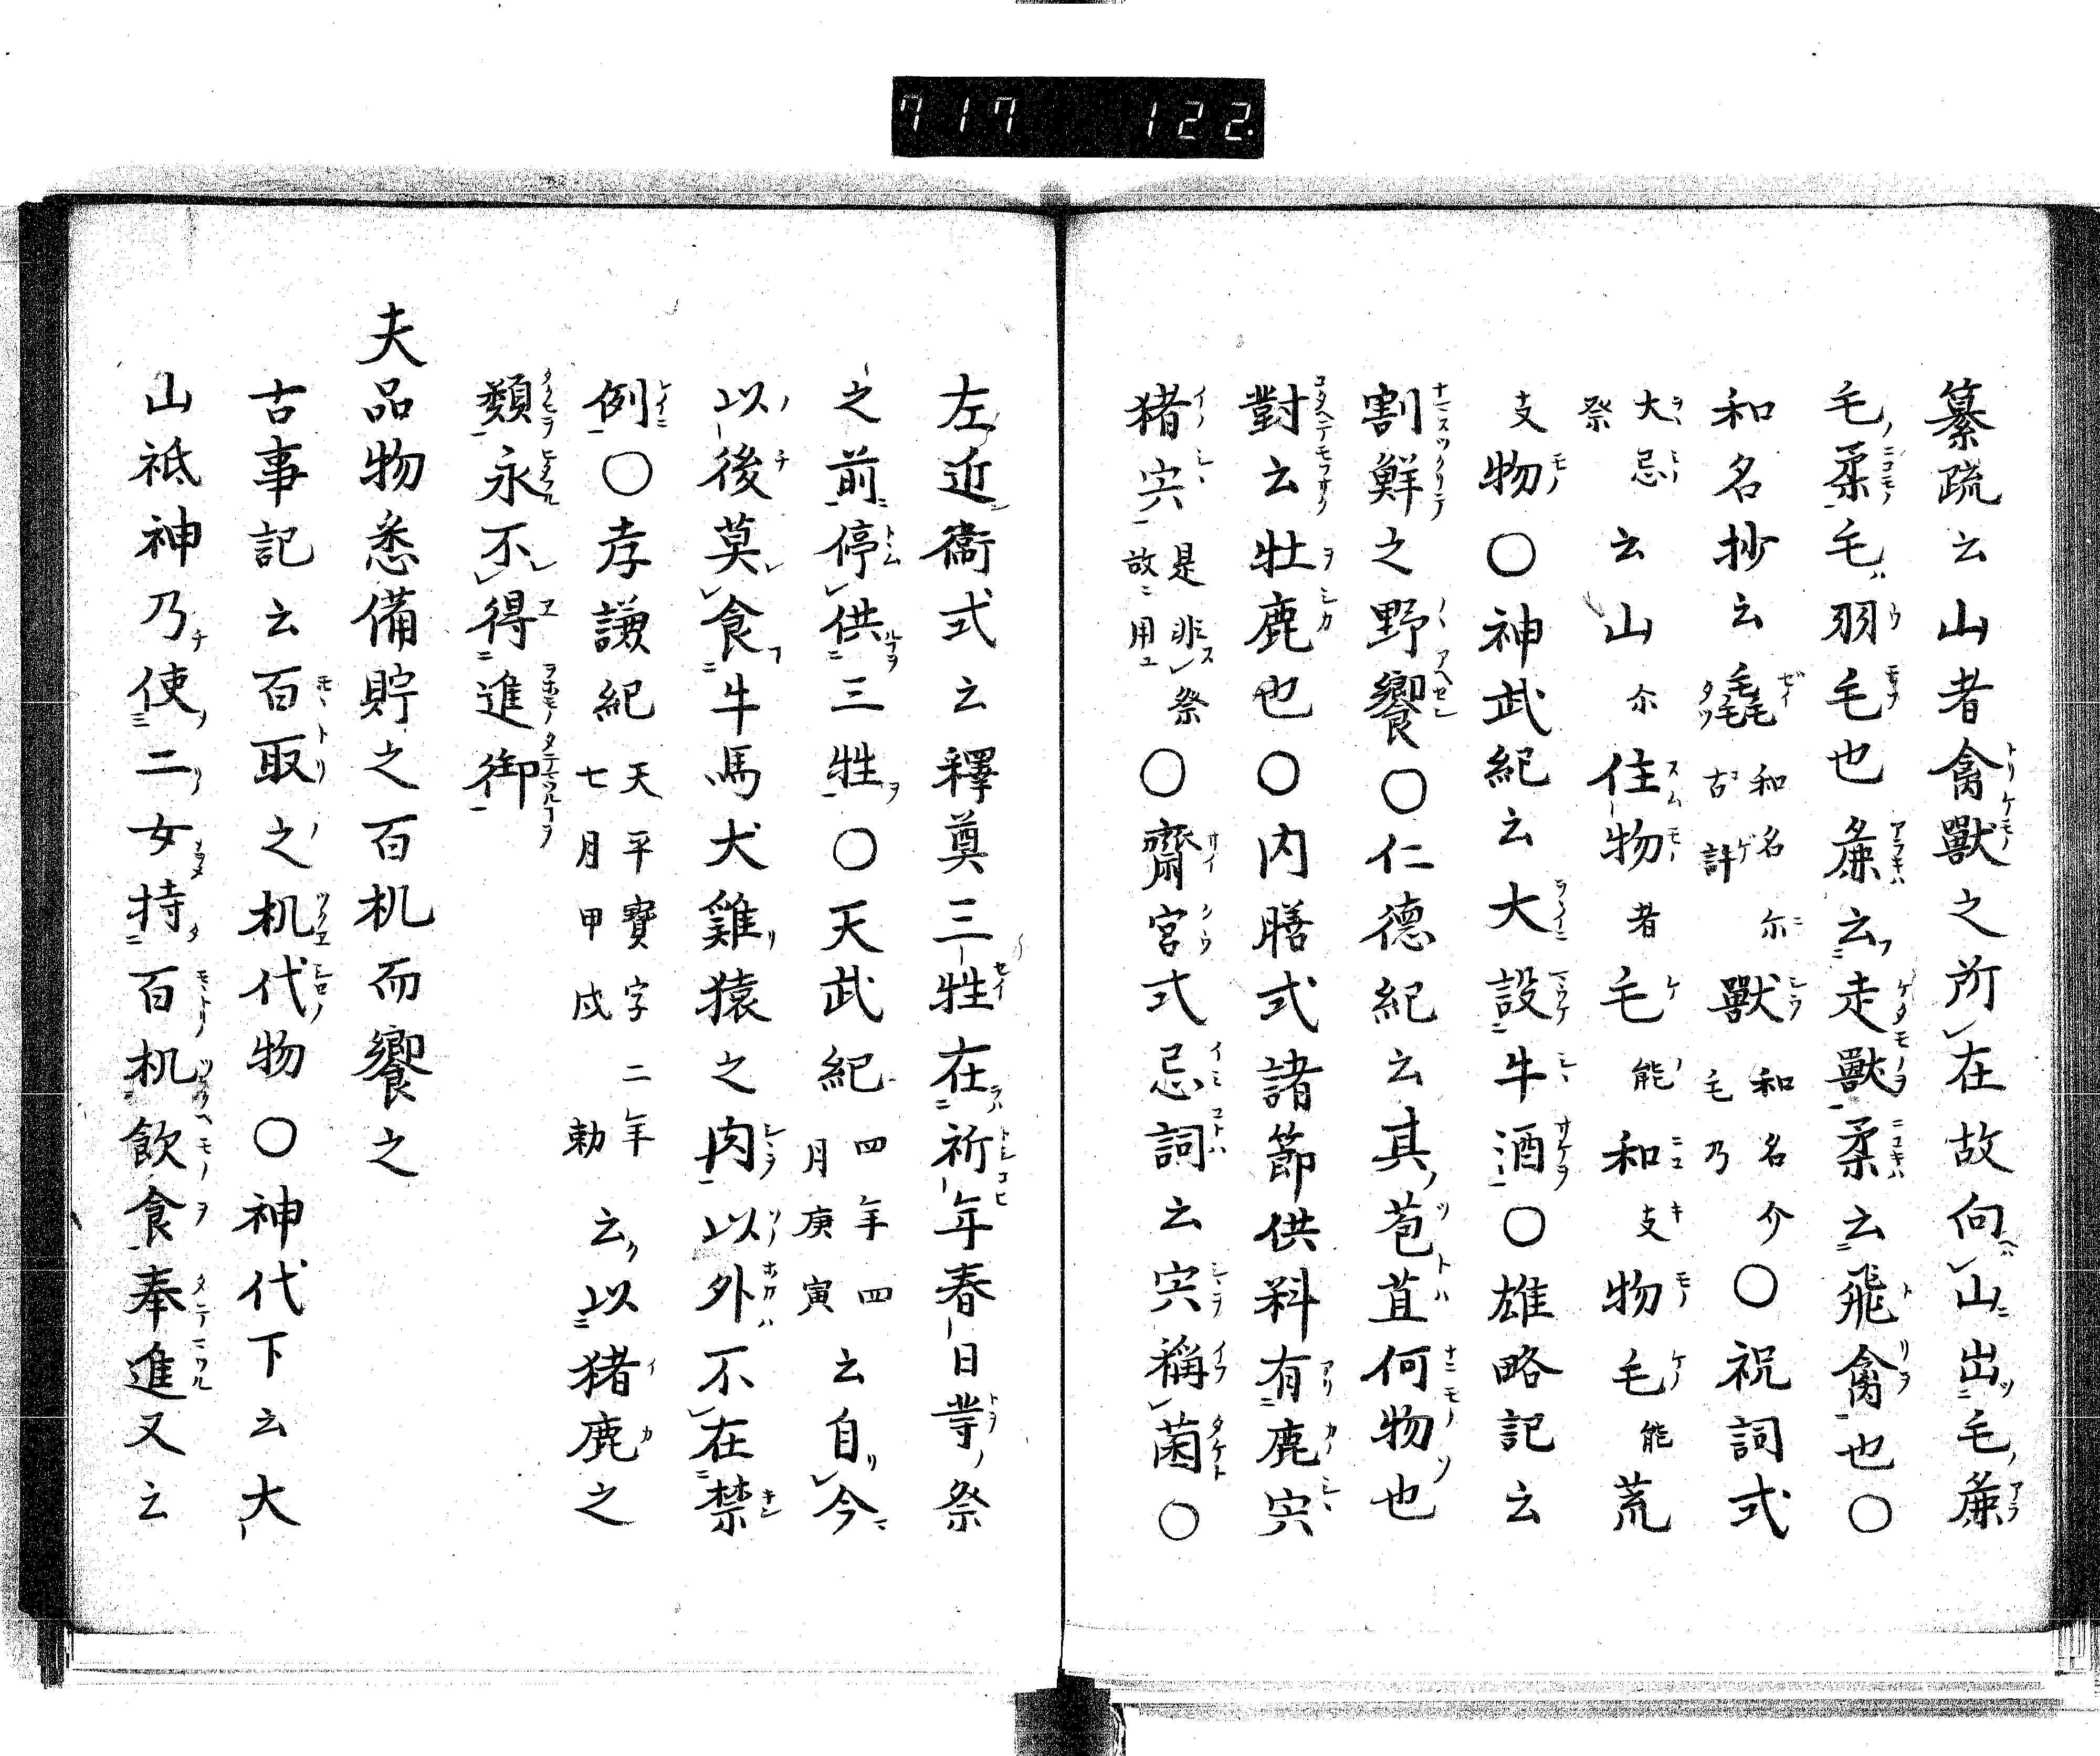 717 122.
纂疏云山者禽獸之所在故向山出毛麁
毛柔毛羽毛也麁云走獸柔云飛禽也〇
和名抄云毳和名尓古計獸和名介毛乃〇祝詞式
大忌祭云山尓住物者毛能和支物毛能荒
支物〇神武紀云大設牛酒〇雄略記云
割鮮之野饗〇仁德紀云其苞苴何物也
對云牡鹿也〇內膳式諸節供料有鹿宍
猪宍是非祭故用〇齋宮式忌詞云宍稱菌〇
左近衞式云釋奠三牲在祈年春日等祭
之前停供三牲〇天武紀四年四月庚寅云自今
以後莫食牛馬犬雞猿之肉以外不在禁
例〇孝謙紀天平寶字二年七月甲戌勅云以猪鹿之
類永不得進御
夫品物悉備貯之百机而饗之
古事記云百取之机代物〇神代下云大
山祇神乃使二女持百机飲食奉進又云